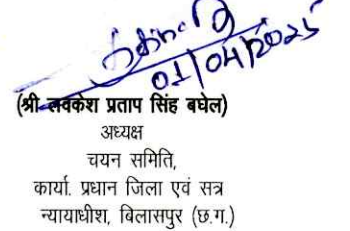 01/04/2025
(श्री लवकेश प्रताप सिंह बघेल)
अध्यक्ष
चयन समिति,
कार्या. प्रधान जिला एवं सत्र
न्यायाधीश, बिलासपुर (छ.ग.)